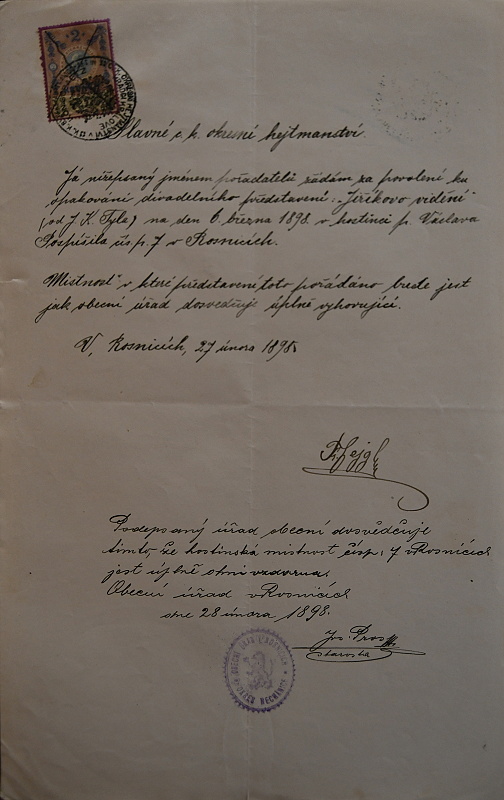 Slavné c. k. okresní hejtmanství.
Já nížepsaný jménem pořadatelů žádám za povolení ku
opakování divadelního představení: „Jiříkovo vidění"
(od J. K. Tyla) na den 6. března 1898 v hostinci p. Václava
Pospíšila čís p. 7 v Rosnicích.
Místnosť v které představení toto pořádáno bude jest
jak obecní úřad dosvědčuje úplně vyhovující.
V, Rosnicích, 27 února 1898
Podepsaný úřad obecní dosvědčuje
tímto, že hostinská místnost čísp: 7 v Rosnicích
jest úplně ohni vzdorna.
Obecní úřad v Rosnicích
dne 28 února 1898.
Jos. Pros
starosta